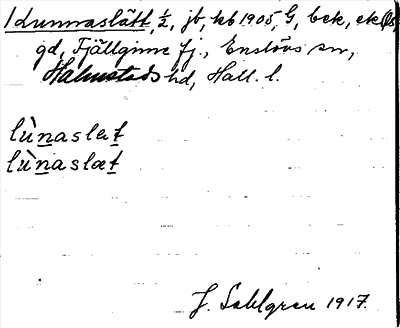 1 Lunnaslätt, 1/2, jb, kb 1905, G, bek, ek
gd, Fjällginne fj., Enslövs sn,
Halmstads hd, Hall. l.
lùnaslet
lùnaslæt
J. Sahlgren 1917.